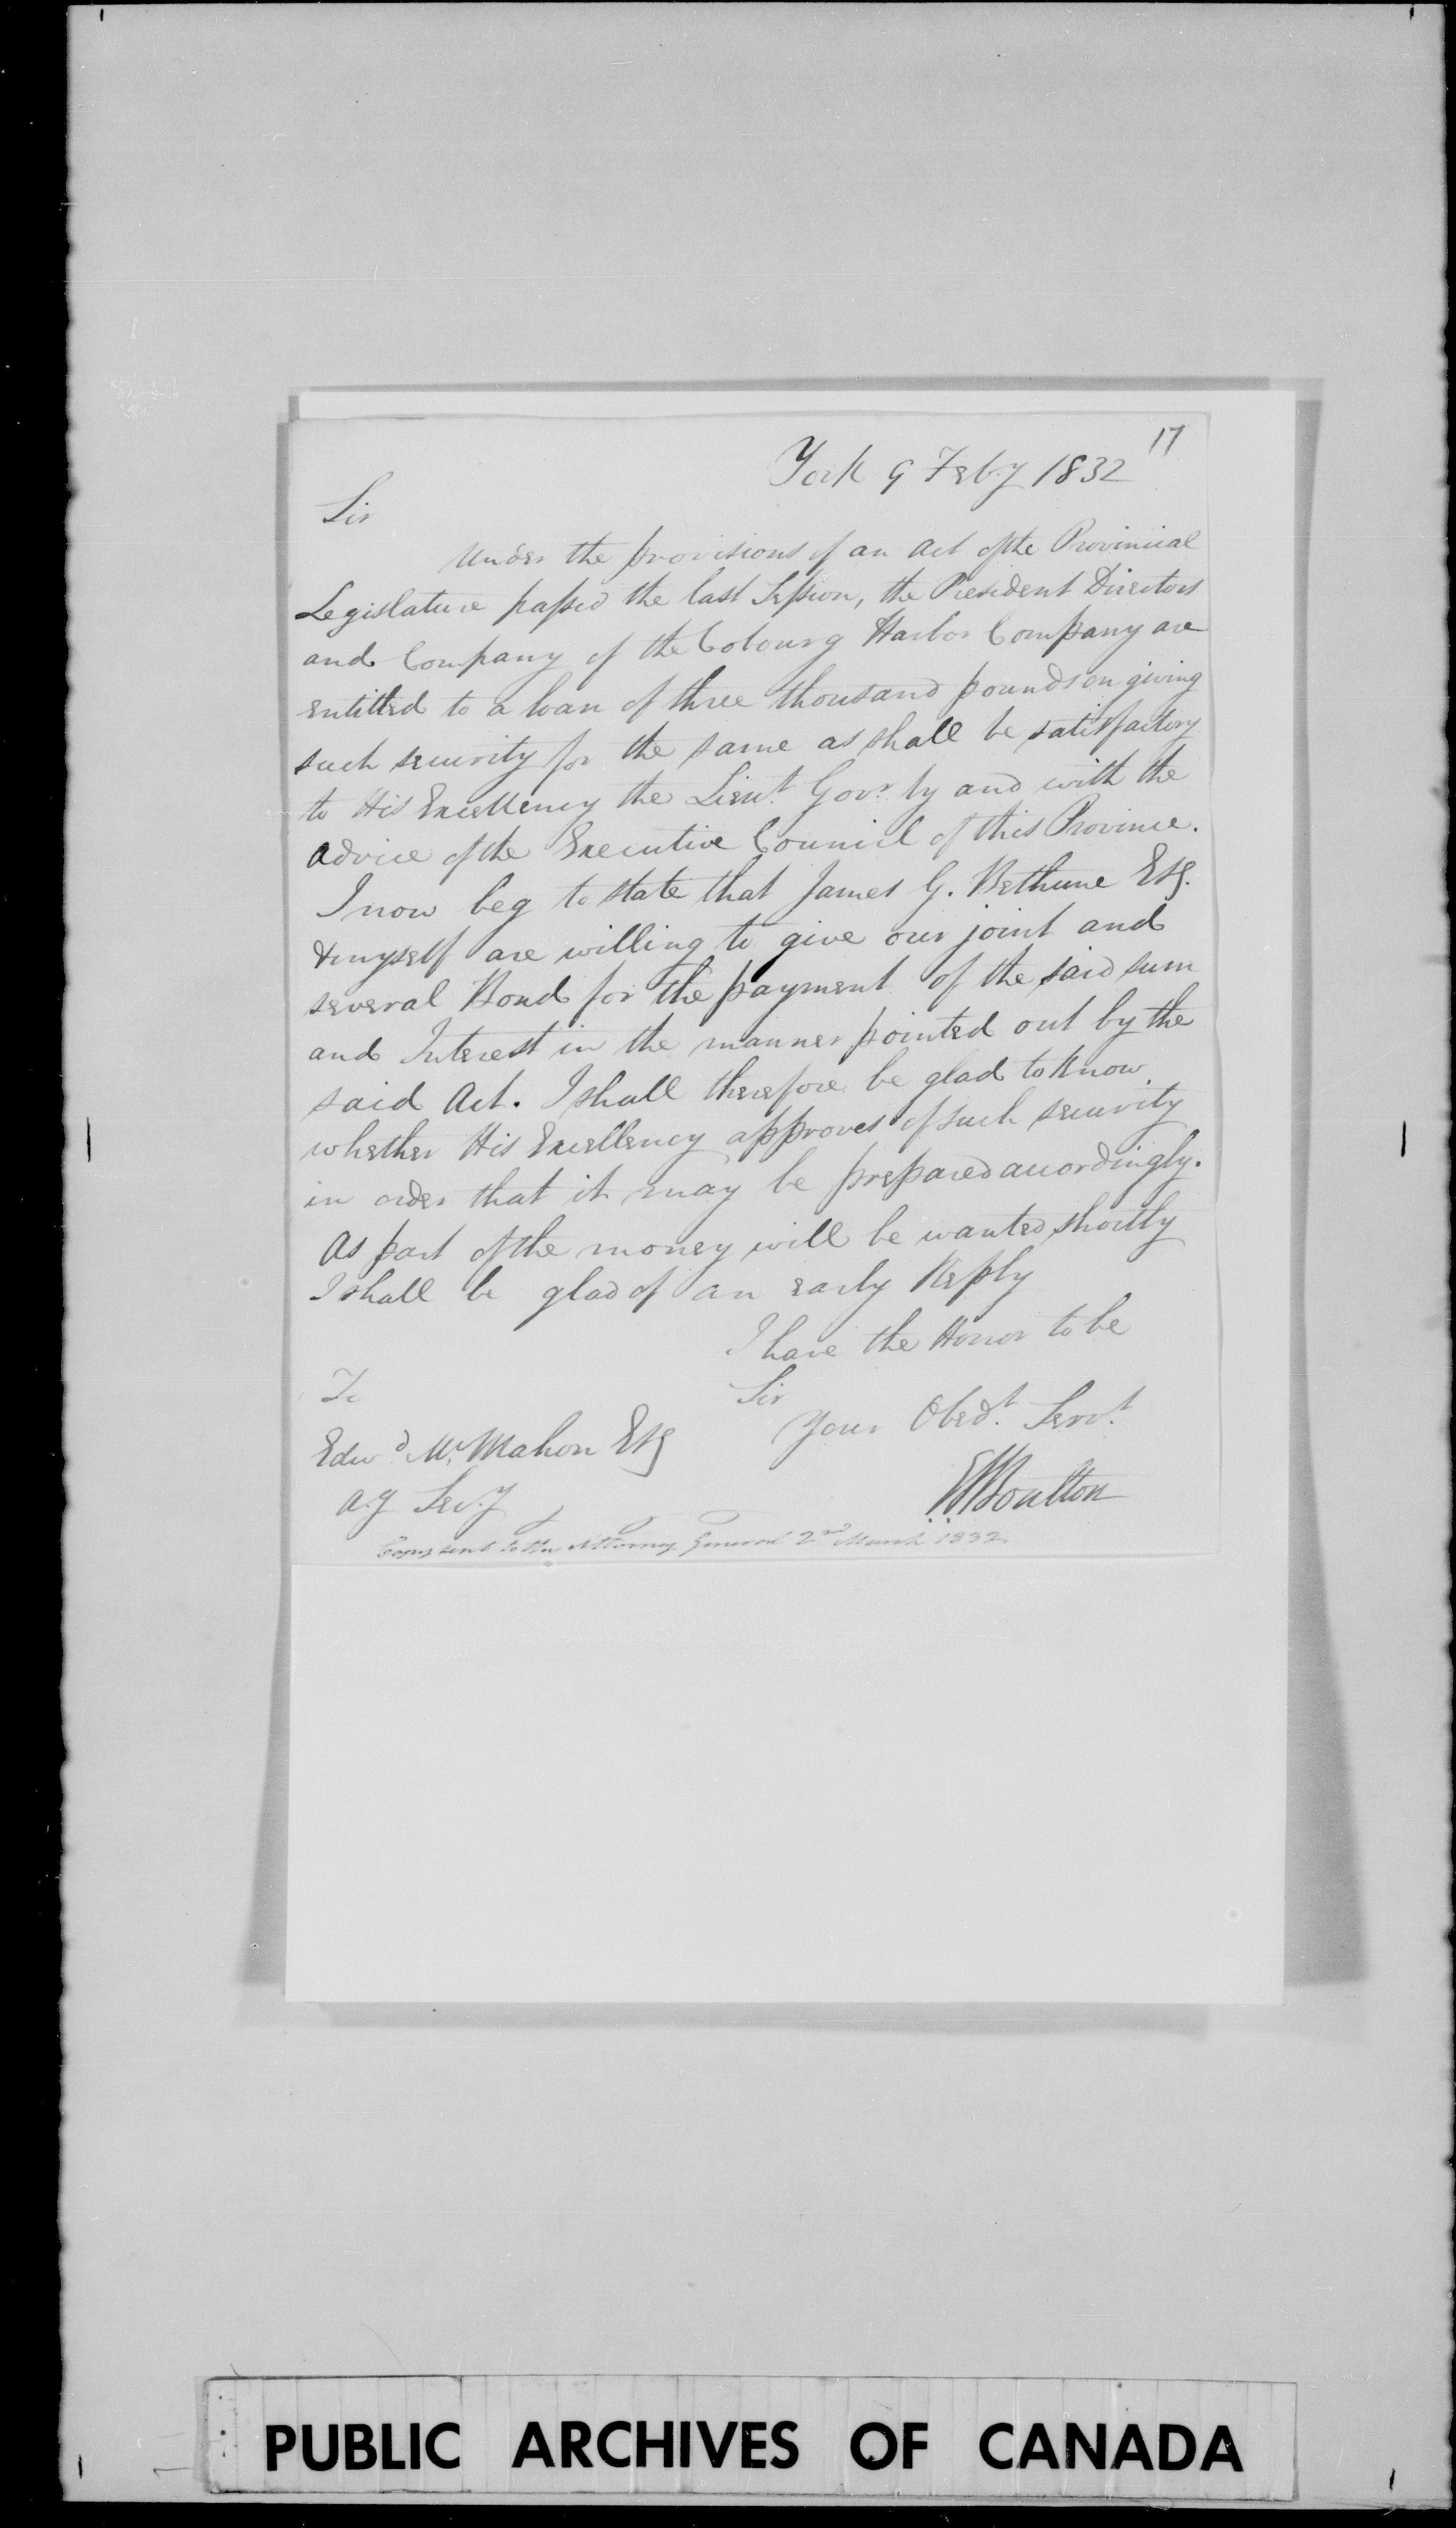 17
York 9 Feby 1832
Sir
Under the provisions of an Act of the Provincial
Legislature passed the last Session, the President Directors
and Company of the Cobourg Harbor Company are
entitled to a loan of three thousand pounds on giving
such security for the same as shall be satisfactory
to His Excellency the Lieut. Govr. by and with the
advice of the Executive Council of this Province.
I now beg to state that James G. Bethune Esq.
& myself are willing to give our joint and
several Bond for the payment of the said sum
and Interest in the manner pointed out by the
said Act. I shall therefore be glad to know
whether His Excellency approves of such security
in order that it may be prepared accordingly.
As part of the money will be wanted shortly
I shall be glad of an early Reply
I have the Honor to be
Sir
Your Obedt. Servt.
Boulton
To
Edwd. McMahon Esq
Ag Secy
Copy sent to the Attorney General 2nd March 1832
PUBLIC ARCHIVES OF CANADA